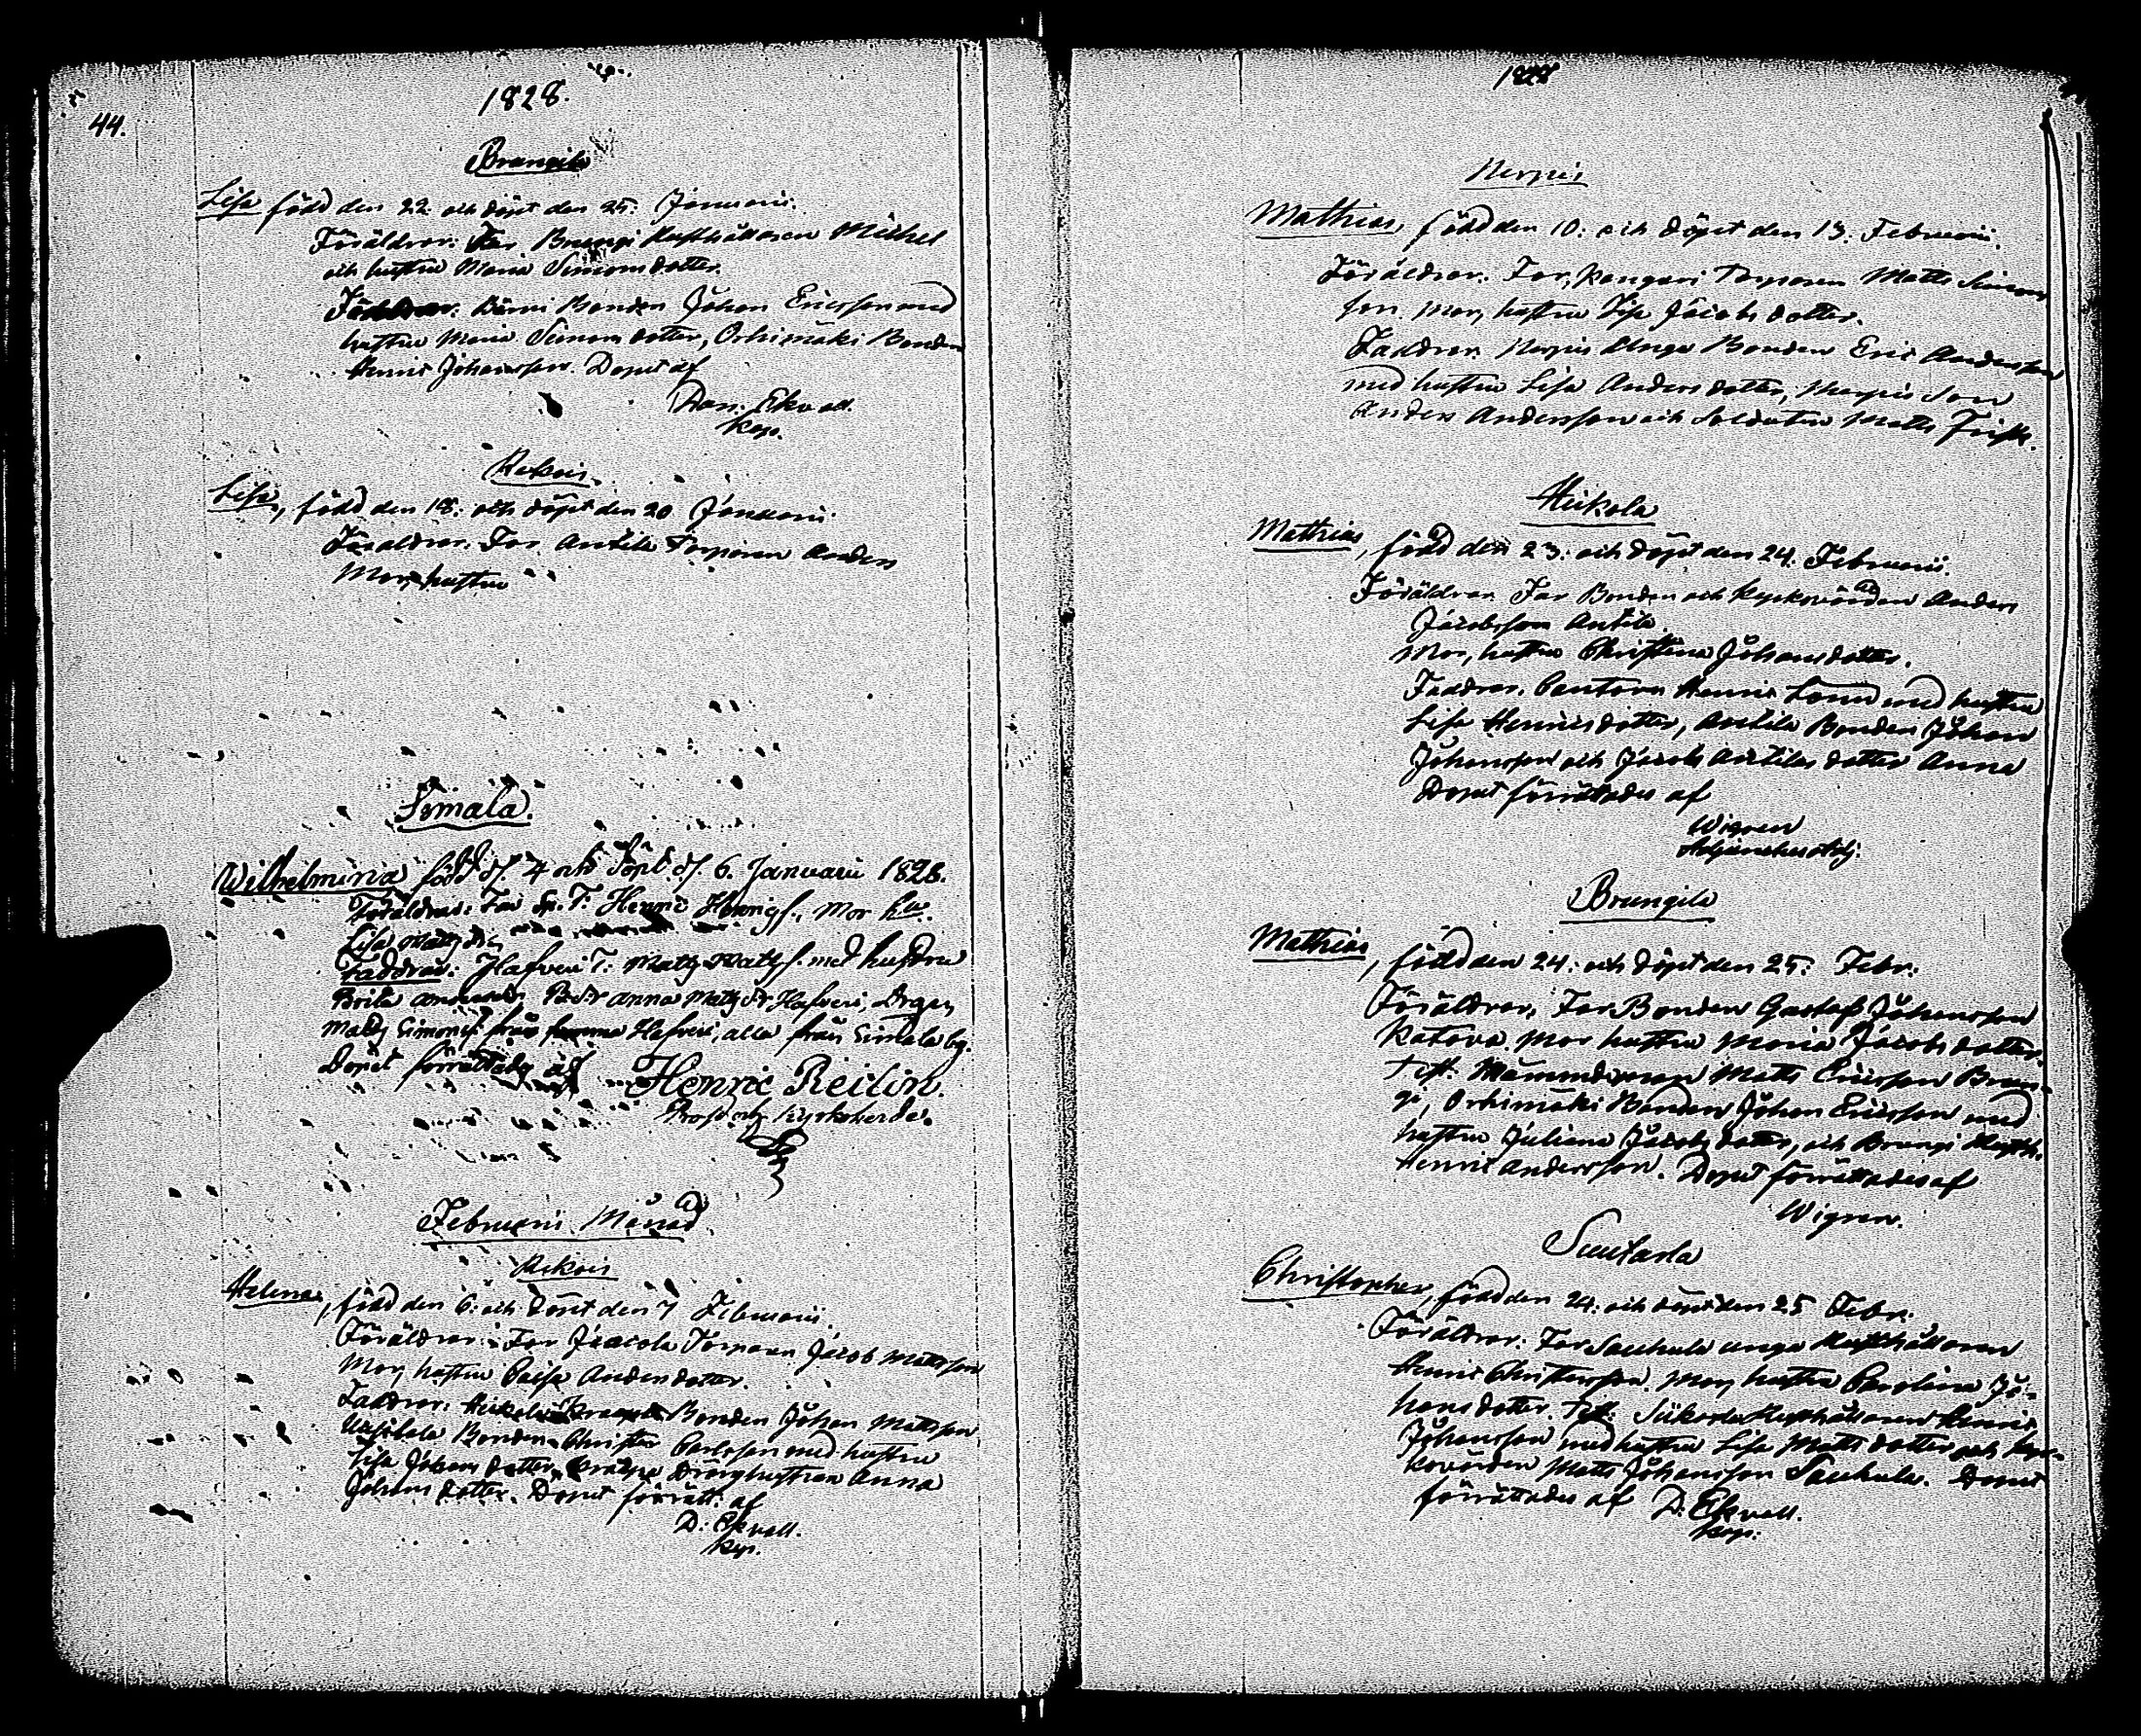 44.
1828.
Brungila
Lisa född den 22. och döpt den 25. Januarii.
Föräldrar: Far Brungi Rusthållaren Michel
och hustru Maria Simonsdotter.
Faddrar: Bonden Johan Ericsson med
hustru Maria Simonsdotter, Orhimäki Bonden
Henric Johansson. Doput af
Dan. Ekvall.
Kap.
Rekois.
Lisa, född den 18. och döpt den 20 Januarii.
Föräldrar. Far Antila Torparen Anders
Mor, hustru
Simala.
Wilhelmina född d. 4 och döpt d. 6. Januarii 1828.
Föräldrar: Far Henric Henrics., Mor hu.
Lisa
Faddrar: Hafveri T: Matts Matts. med hustru
Brita Anna Matsdr Hafveri, Drgen
Matts Simons. Hafveri, alla från Simala by.
Döpet förrättades af Henric Reilin.
Prost och Kyrkoherde.
Februarii Månad
Rekois
Helena, född den 6. och döpt den 7 Februarii.
Föräldrar: Far Jaacola Torparen Jacob Mattsson
Mor, hustru Caisa Andersdotter.
Faddrar: Heikola Bonden Johan Mattsson
Bonden Christer Carlsson med hustru
Lisa Johansdotter, Dränghustrun Anna
Johansdotter. Doput förrätt. af
D: Ekvall.
Kap.
1828
Nerpis
Mathias, född den 10: och döpt den 13. Februarii.
Föräldrar. Far, Kangari Torparen Matts Simons
son. Mor, hustru Lisa Jacobsdotter.
Faddrar. Nerpis Unga Bonden Eric Andersson
med hustru Lisa Andersdotter, Nerpis Son
Anders Andersson och Soldaten Matts Frisk.
Heikola
Mathias, född den 23. och döpt den 24. Februarii.
Föräldrar. Far Bonden och Kyrkovärden Anders
Jacobsson Antila
Mor, hustru Christina Johansdotter.
Faddrar. Cantorn Henric Lond med hustru
Lisa Henricsdotter, Antila Bonden Johan
Johansson och Jacobs Antilas dotter Anna
Doput förrättades af
Wigren
Brungila
Mathias, född den 24. och döpt den 25. Febr.
Föräldrar, Far Bonden Gustaf Johansson
Katova. Mor hustru Maria Jacobsdotter.
Test: Nämndeman Matts Ericsson Brun-
gi, Orhimäki Bonden Johan Ericsson med
hustru Juliana Jacobsdotter, och Brungi Rusth.
Henric Andersson. Doput förrättades af
Wigren.
Suutarla
Christopher, född den 24. och döpt den 25 Febr.
Föräldrar: Far Sauhula unga Rusthållaren
Henric Christersson. Mor, hustru Carolina Jo-
hansdotter. Test: Siikarla Rusthållaren Henric
Johansson med hustru Lisa Mattsdotter och Kyr-
kovärden Matts Johansson Sauhula. Doput
förrättades af D: Ekvall.
Kap.